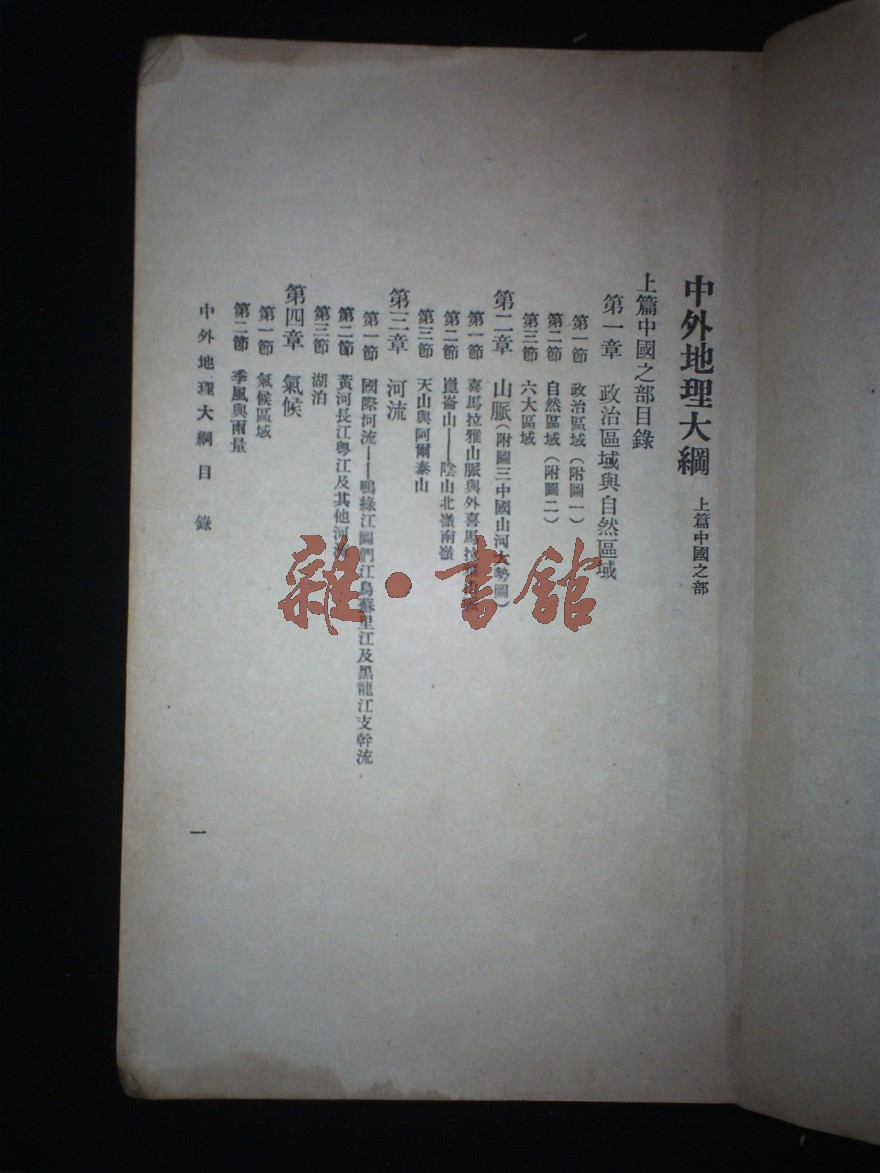 中外地理大綱 上篇中國之部
上篇中國之部目錄
第一章 政治區域與自然區域
第一節 政治區域(附圖一)
第二節 自然區域(附圖二)
第三節 六大區域
第二章 山脈(附圖三中國山河大勢圖)
第一節 喜馬拉雅山脈與外喜馬拉
第二節 崑崙山——陰山北嶺南嶺
第三節 天山與阿爾泰山
第三章 河流
第一節 國際河流——鴨綠江圖們江烏蘇里江及黑龍江支幹流
第二節 黃河長江粵江及其他河
第三節 湖泊
第四章 氣候
第一節 氣候區域
第二節 季風與雨量
中外地理大綱 目錄
一
雜·書館